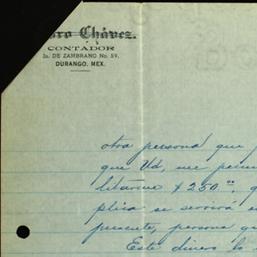 dro Chávez.
CONTADOR
2a. DE ZAMBRANO No. 59.
DURANGO. MEX.
otra persona que
que Ud, me perm
litárme $250.00, q
plica se servirá e
presente, persona qu
Este dinero lo